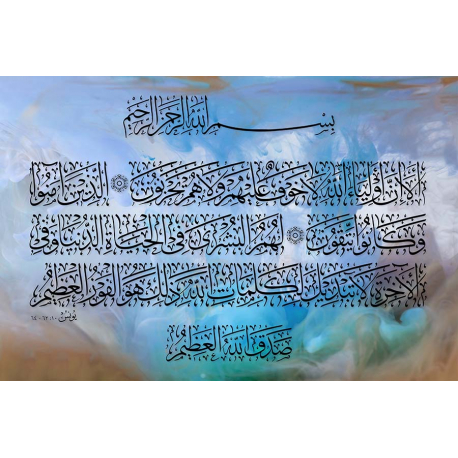 بسم الله الرحمن الرحيم
ألا إن أولياء الله لا خوف عليهم ولا هم يحزنون ۝ الذين آمنوا
وكانوا يتقون ۝ لهم البشرى في الحياة الدنيا وفي
الآخرة لا تبديل لكلمات الله ذلك هو الفوز العظيم
يونس
صدق الله العظيم